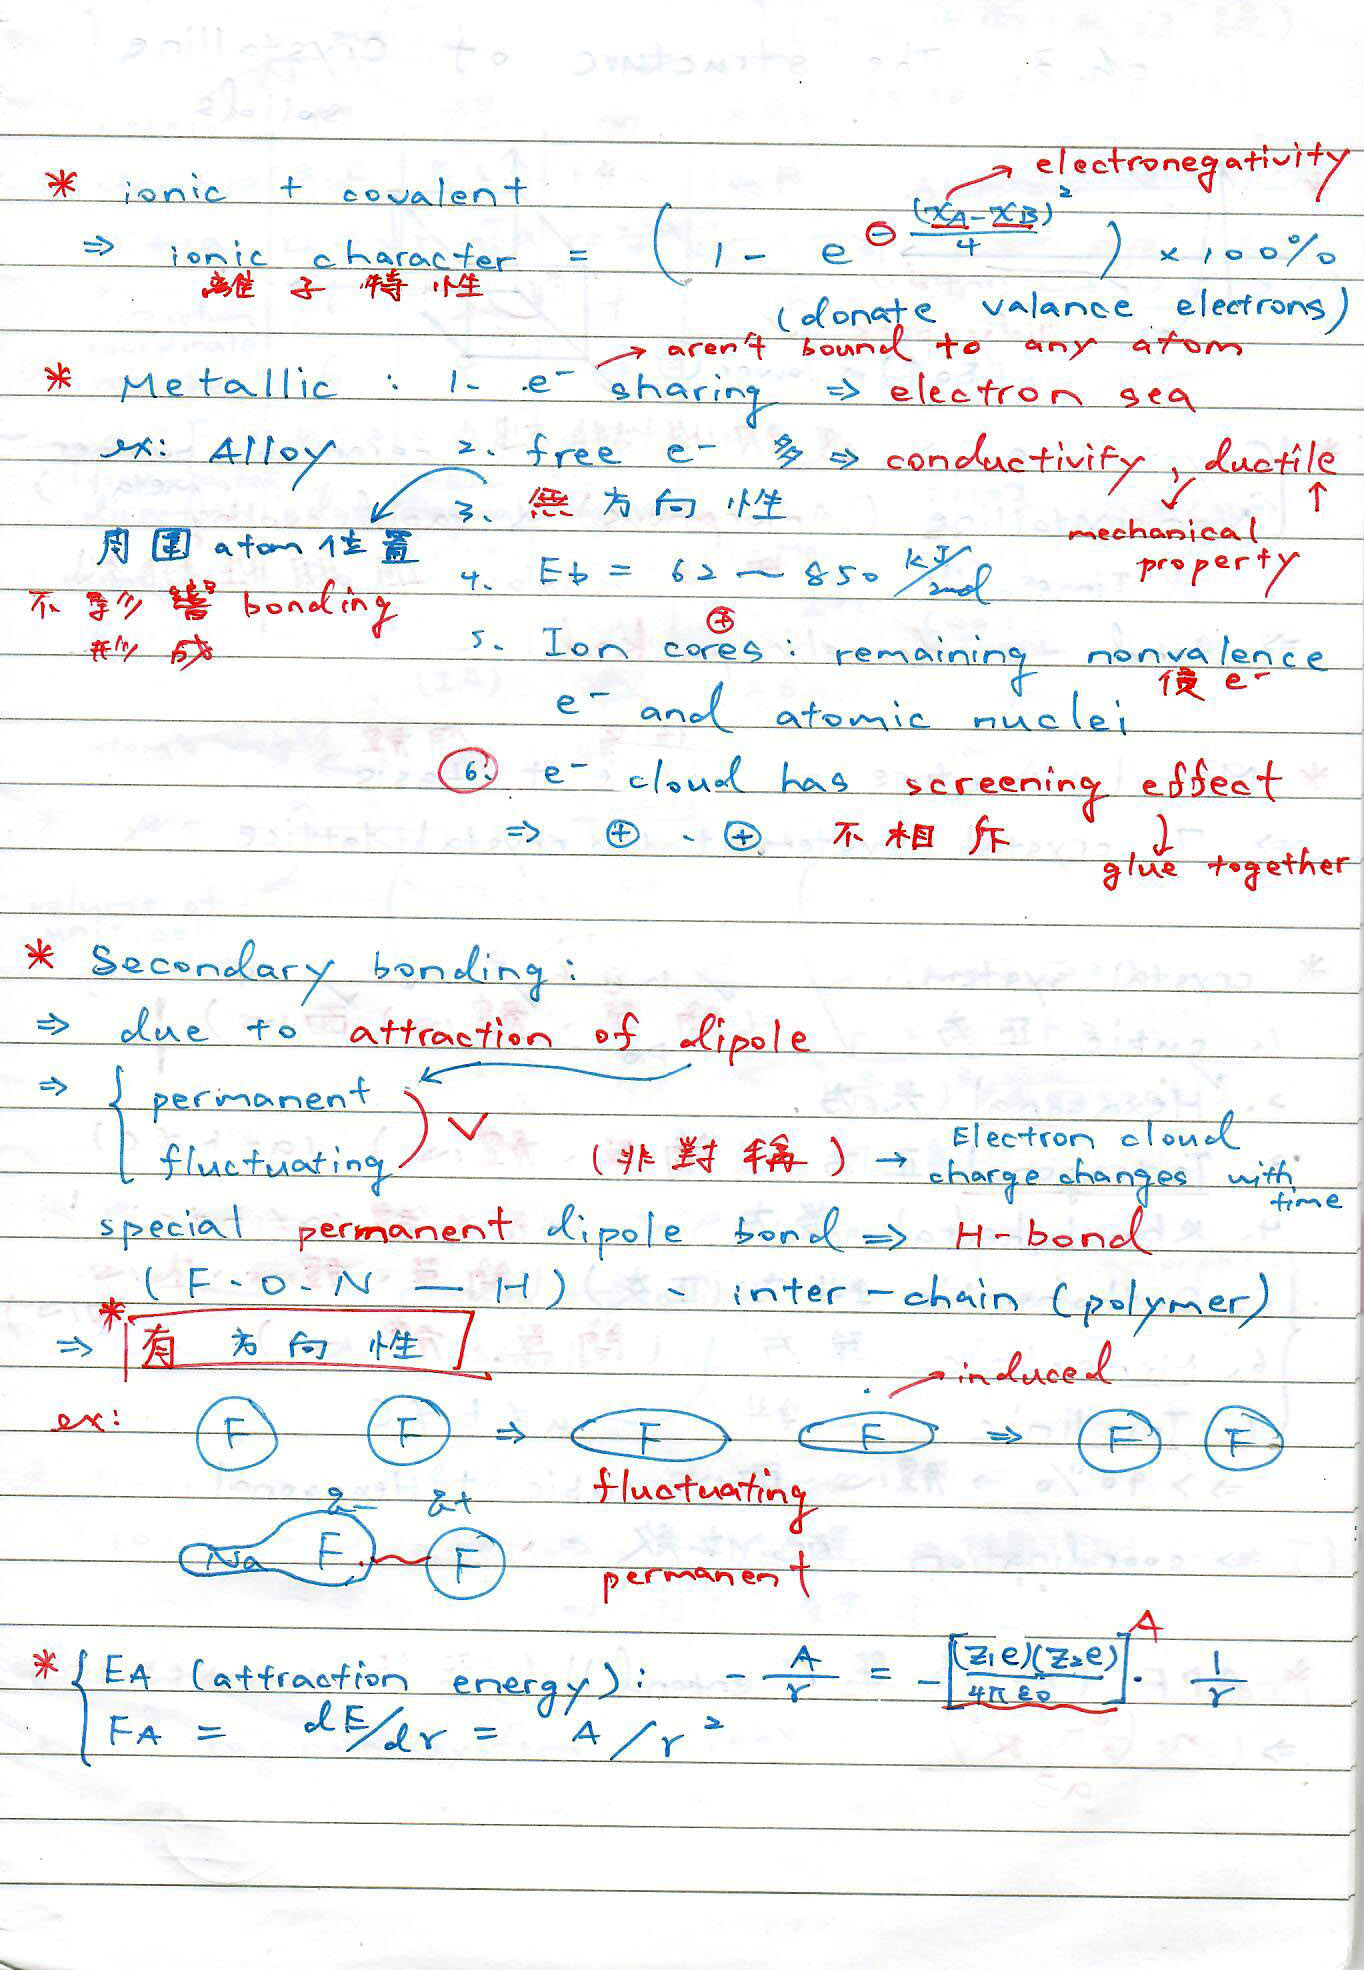 * ionic + covalent → electronegativity
⇒ ionic character = (1 - e^⊖(xA-xB)²/4) × 100%
離子特性 (donate valance electrons)
→ aren't bound to any atom
* Metallic : 1. e⁻ sharing ⇒ electron sea
ex: Alloy 2. free e⁻ 多 ⇒ conductivity, ductile
3. 無方向性
周圍 atom 位置
mechanical property
不影響 bonding
形成
4. Eb = 62 ~ 850 kJ/mol
⊕
5. Ion cores : remaining nonvalence
e⁻ and atomic nuclei
⑥. e⁻ cloud has screening effect
⇒ ⊕、⊕ 不相斥
↓
glue together
* Secondary bonding :
⇒ due to attraction of dipole
⇒ { permanent
fluctuating
(非對稱) → Electron cloud
charge changes with
time
special permanent dipole bond ⇒ H-bond
(F.O.N — H) 、inter-chain (polymer)
* ⇒ 有方向性
→ induced
ex: F F ⇒ F F ⇒ F F
fluctuating
δ- δ+
Na F F
permanent
* { EA (attraction energy) : - A/r = -[(Z₁e)(Z₂e)/4πε0]^A · 1/r
FA = dE/dr = A/r²